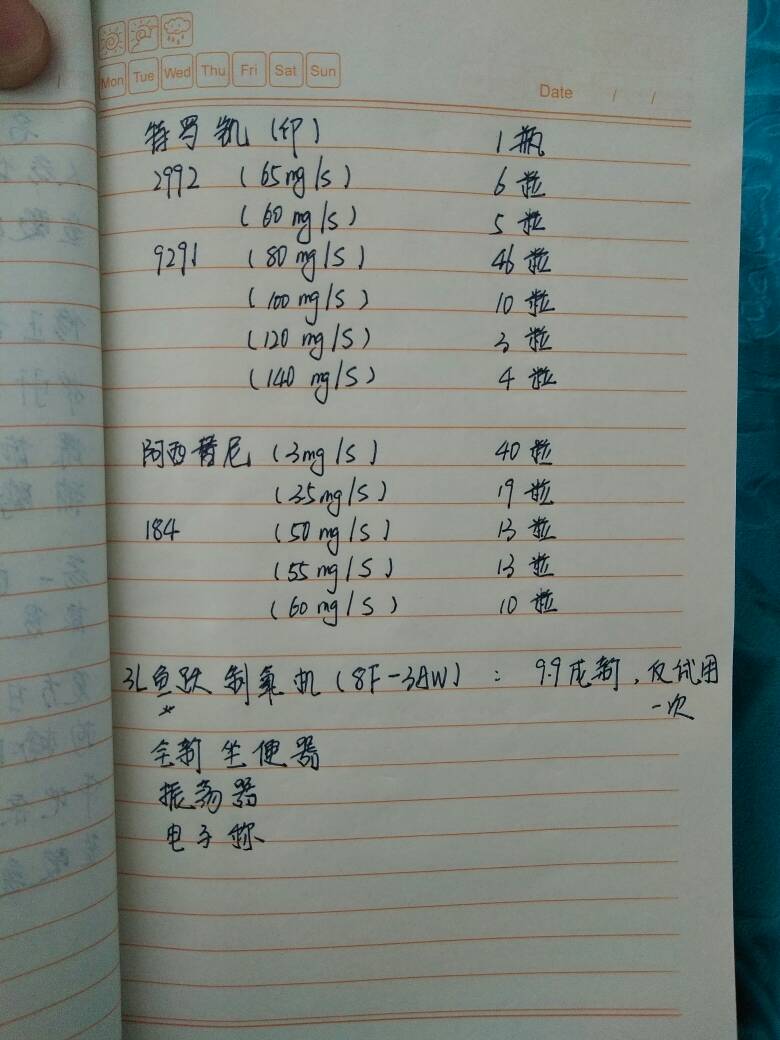 Mon Tue Wed Thu Fri Sat Sun
Date / /
特罗凯（印） 1瓶
2992 （65mg/s） 6粒
（60mg/s） 5粒
9291 （80mg/s） 46粒
（100mg/s） 10粒
（120mg/s） 3粒
（140mg/s） 4粒
阿西替尼（3mg/s） 40粒
（35mg/s） 19粒
184 （50mg/s） 13粒
（55mg/s） 13粒
（60mg/s） 10粒
3L鱼跃制氧机（8F-3AW）： 9.9成新，仅试用
一次
全新坐便器
振荡器
电子称